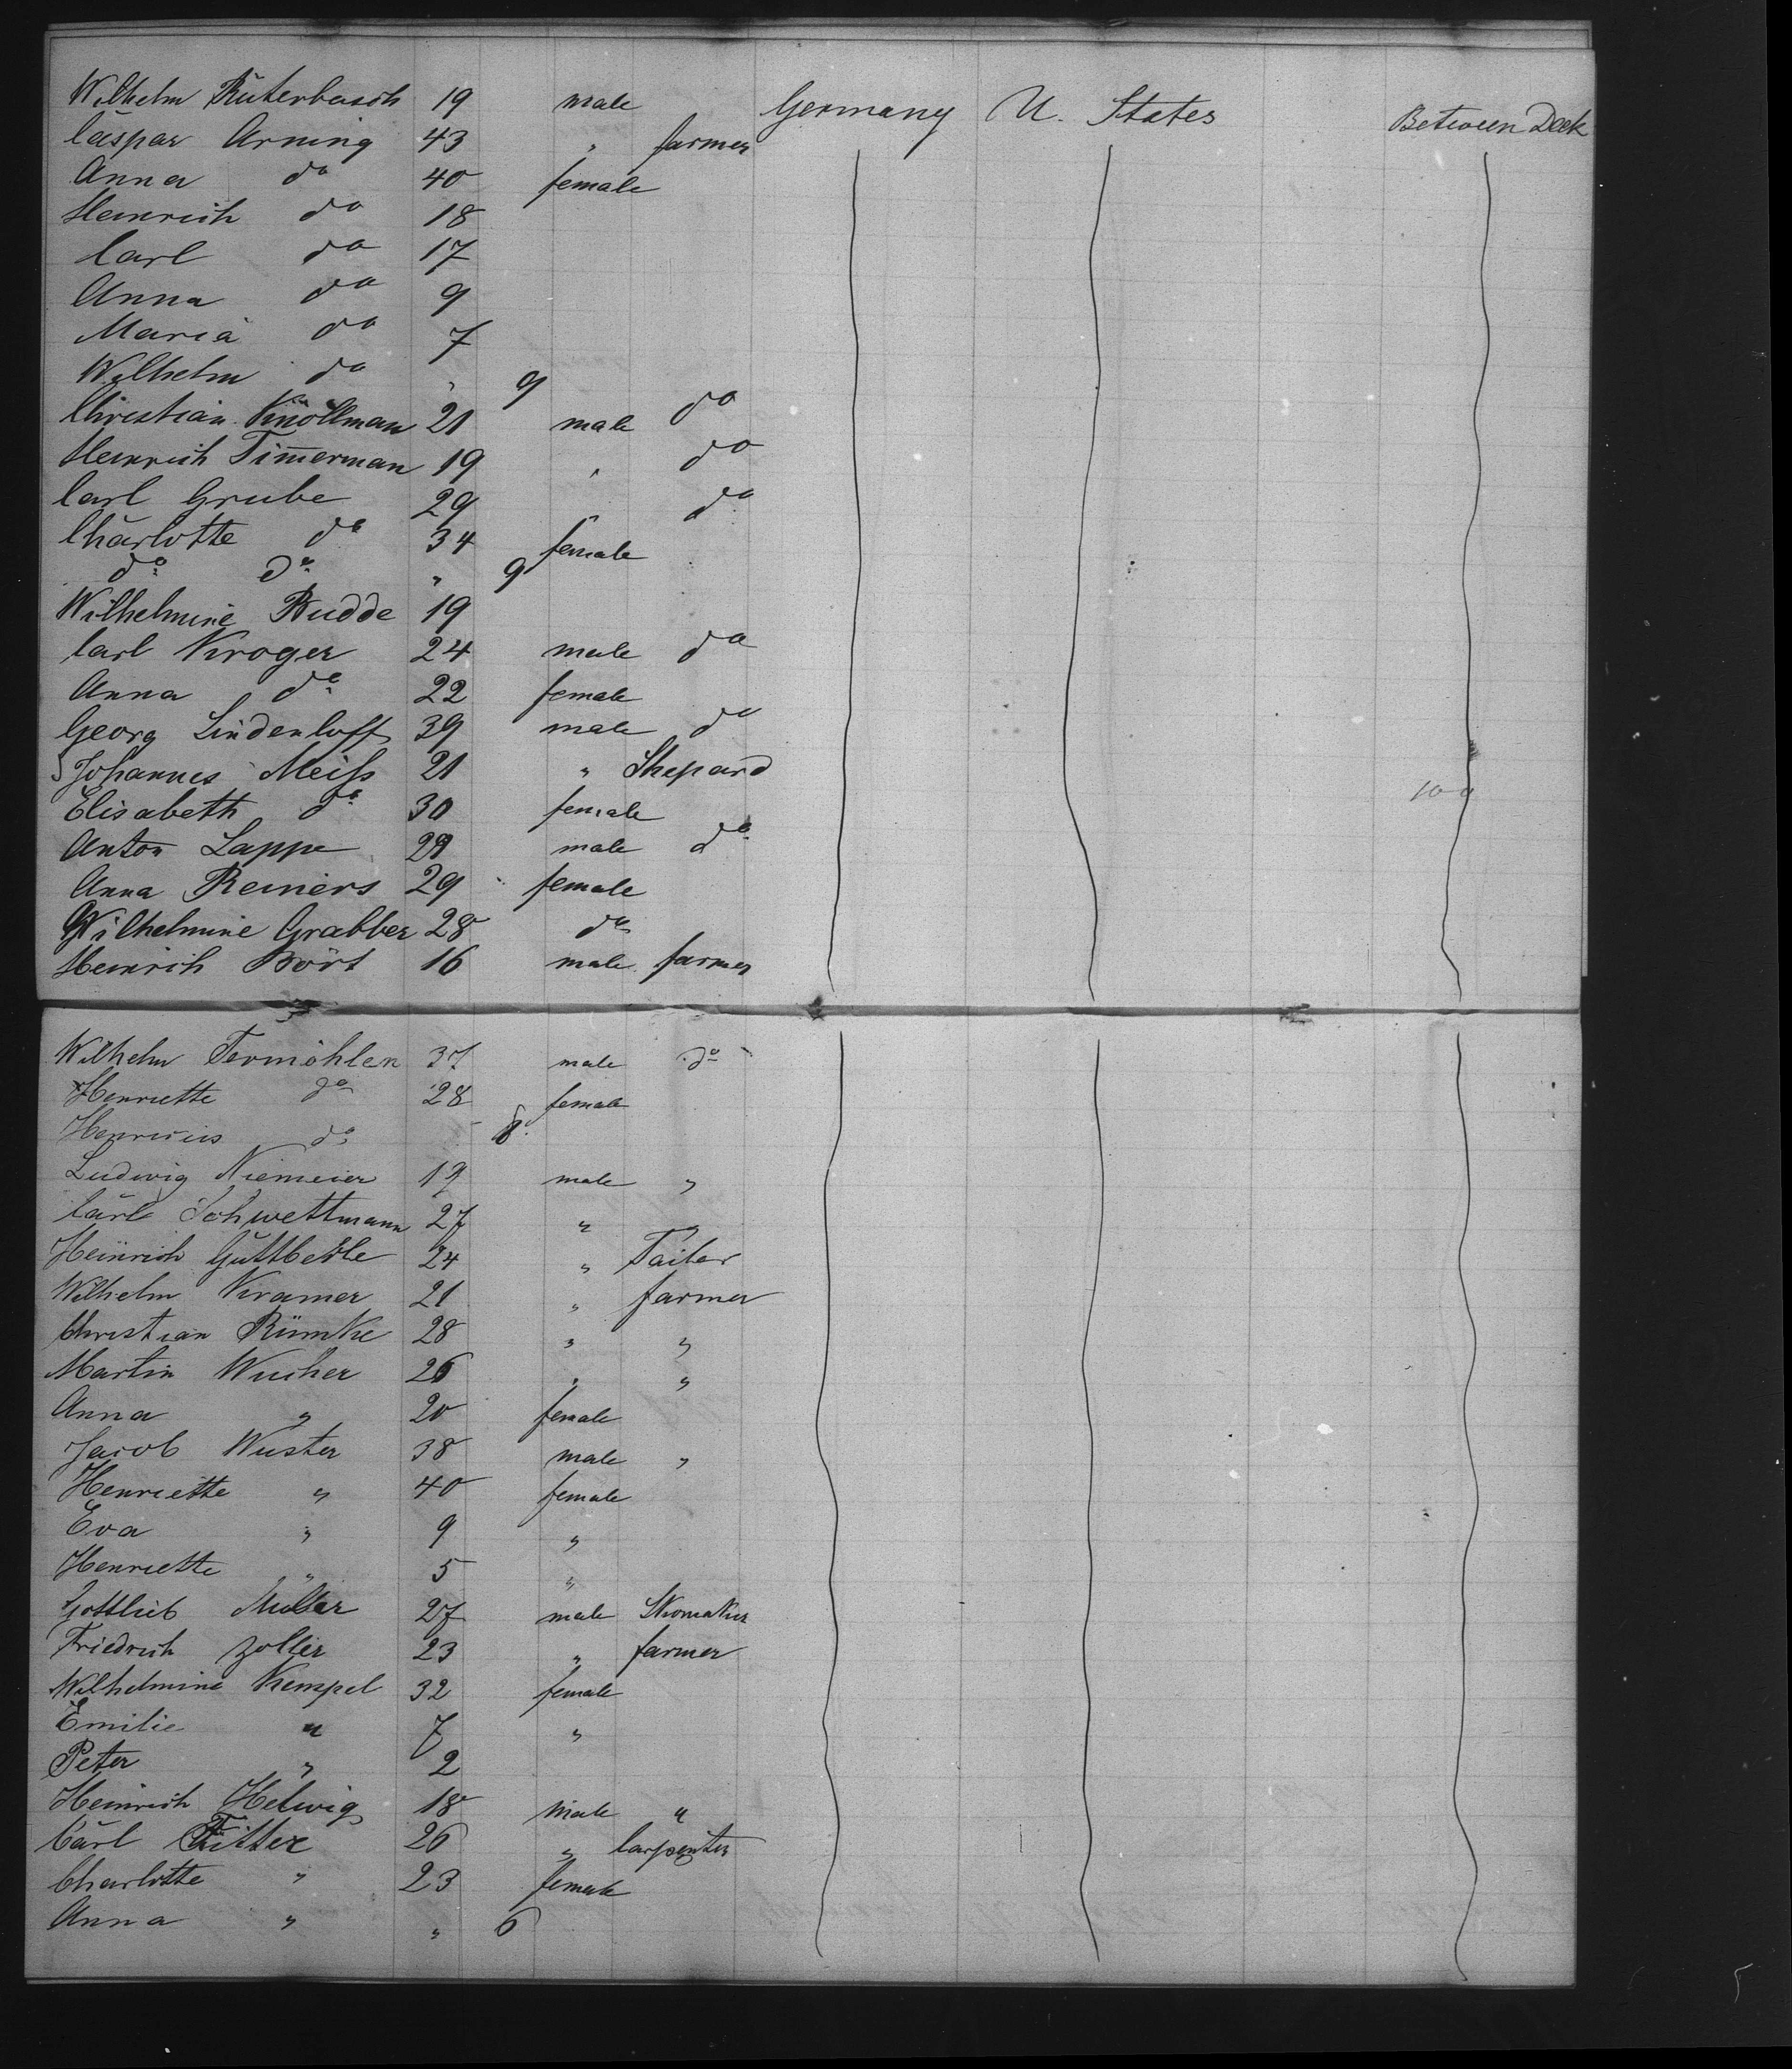 Wilhelm Rüterbusch 19 male Germany U. States Between Deck
Caspar Arning 43 " farmer
Anna do 40 female
Heinrich do 18
Carl do 17
Anna do 9
Maria do 7
Wilhelm do " 9
Christian Knöllman 21 male do
Heinrich Tim̄erman 19 " do
Carl Grube 29 " do
Charlotte do 34 female
do do " 9
Wilhelmine Budde 19
Carl Kroger 24 male do
Anna do 22 female
Georg Lindenloff 39 male do
Johannes Meiß 21 " Shepard
Elisabeth do 30 female
Anton Lappe 29 male do
Anna Reiners 29 female
Wilhelmine Grabber 28 do
Heinrih Bört 16 male farmer
Wilhelm Termöhlen 37 male do
Henriette do 28 female
do 8
Ludwig Niemeier 19 male "
Carl Schwettmann 27 " "
Heinrich Guttberle 24 " Tailer
Wilhelm Kramer 21 " farmer
Christian Rümke 28 " "
Martin Wucher 26 " "
Anna " 20 female
Jacob Wuster 38 male "
Henriette " 40 female
Eva " 9 "
Henriette " 5 "
Gottlieb Müller 27 male Shomaker
Friedrich Zoller 23 " farmer
Wilhelmine Kempel 32 female
Emilie " 7 "
Peter " 2
Heinrich Helwig 18 male "
Carl Fitter 26 " Carpenter
Charlotte " 23 female
Anna " " 6